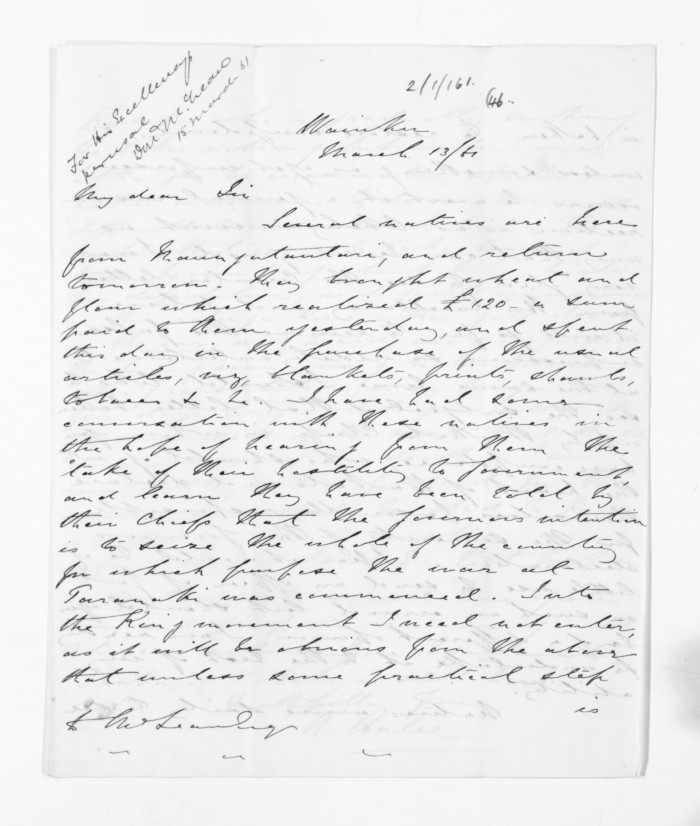 For His Excellency's
perusal
Don McLean
15 March 61
2/1/161.
46.
Waiuku
March 13/61
My dear Sir
Several natives are here
from Maungatautari, and return
tomorrow. They brought wheat and
flour which realized £120 - a sum
paid to them yesterday, and spent
this day in the purchase of the usual
articles, viz, blankets, prints, shawls,
tobacco &c. I have had some
conversation with these natives in
the hope of hearing from them the
take of their hostility to Government,
and learn they have been told by
their Chiefs that the Governor's intention
is to seize the whole of the country
for which purpose the war at
Taranaki was commenced. Into
the King movement I need not enter,
as it will be obvious from the above
that unless some practical step
is
to McLean Esq